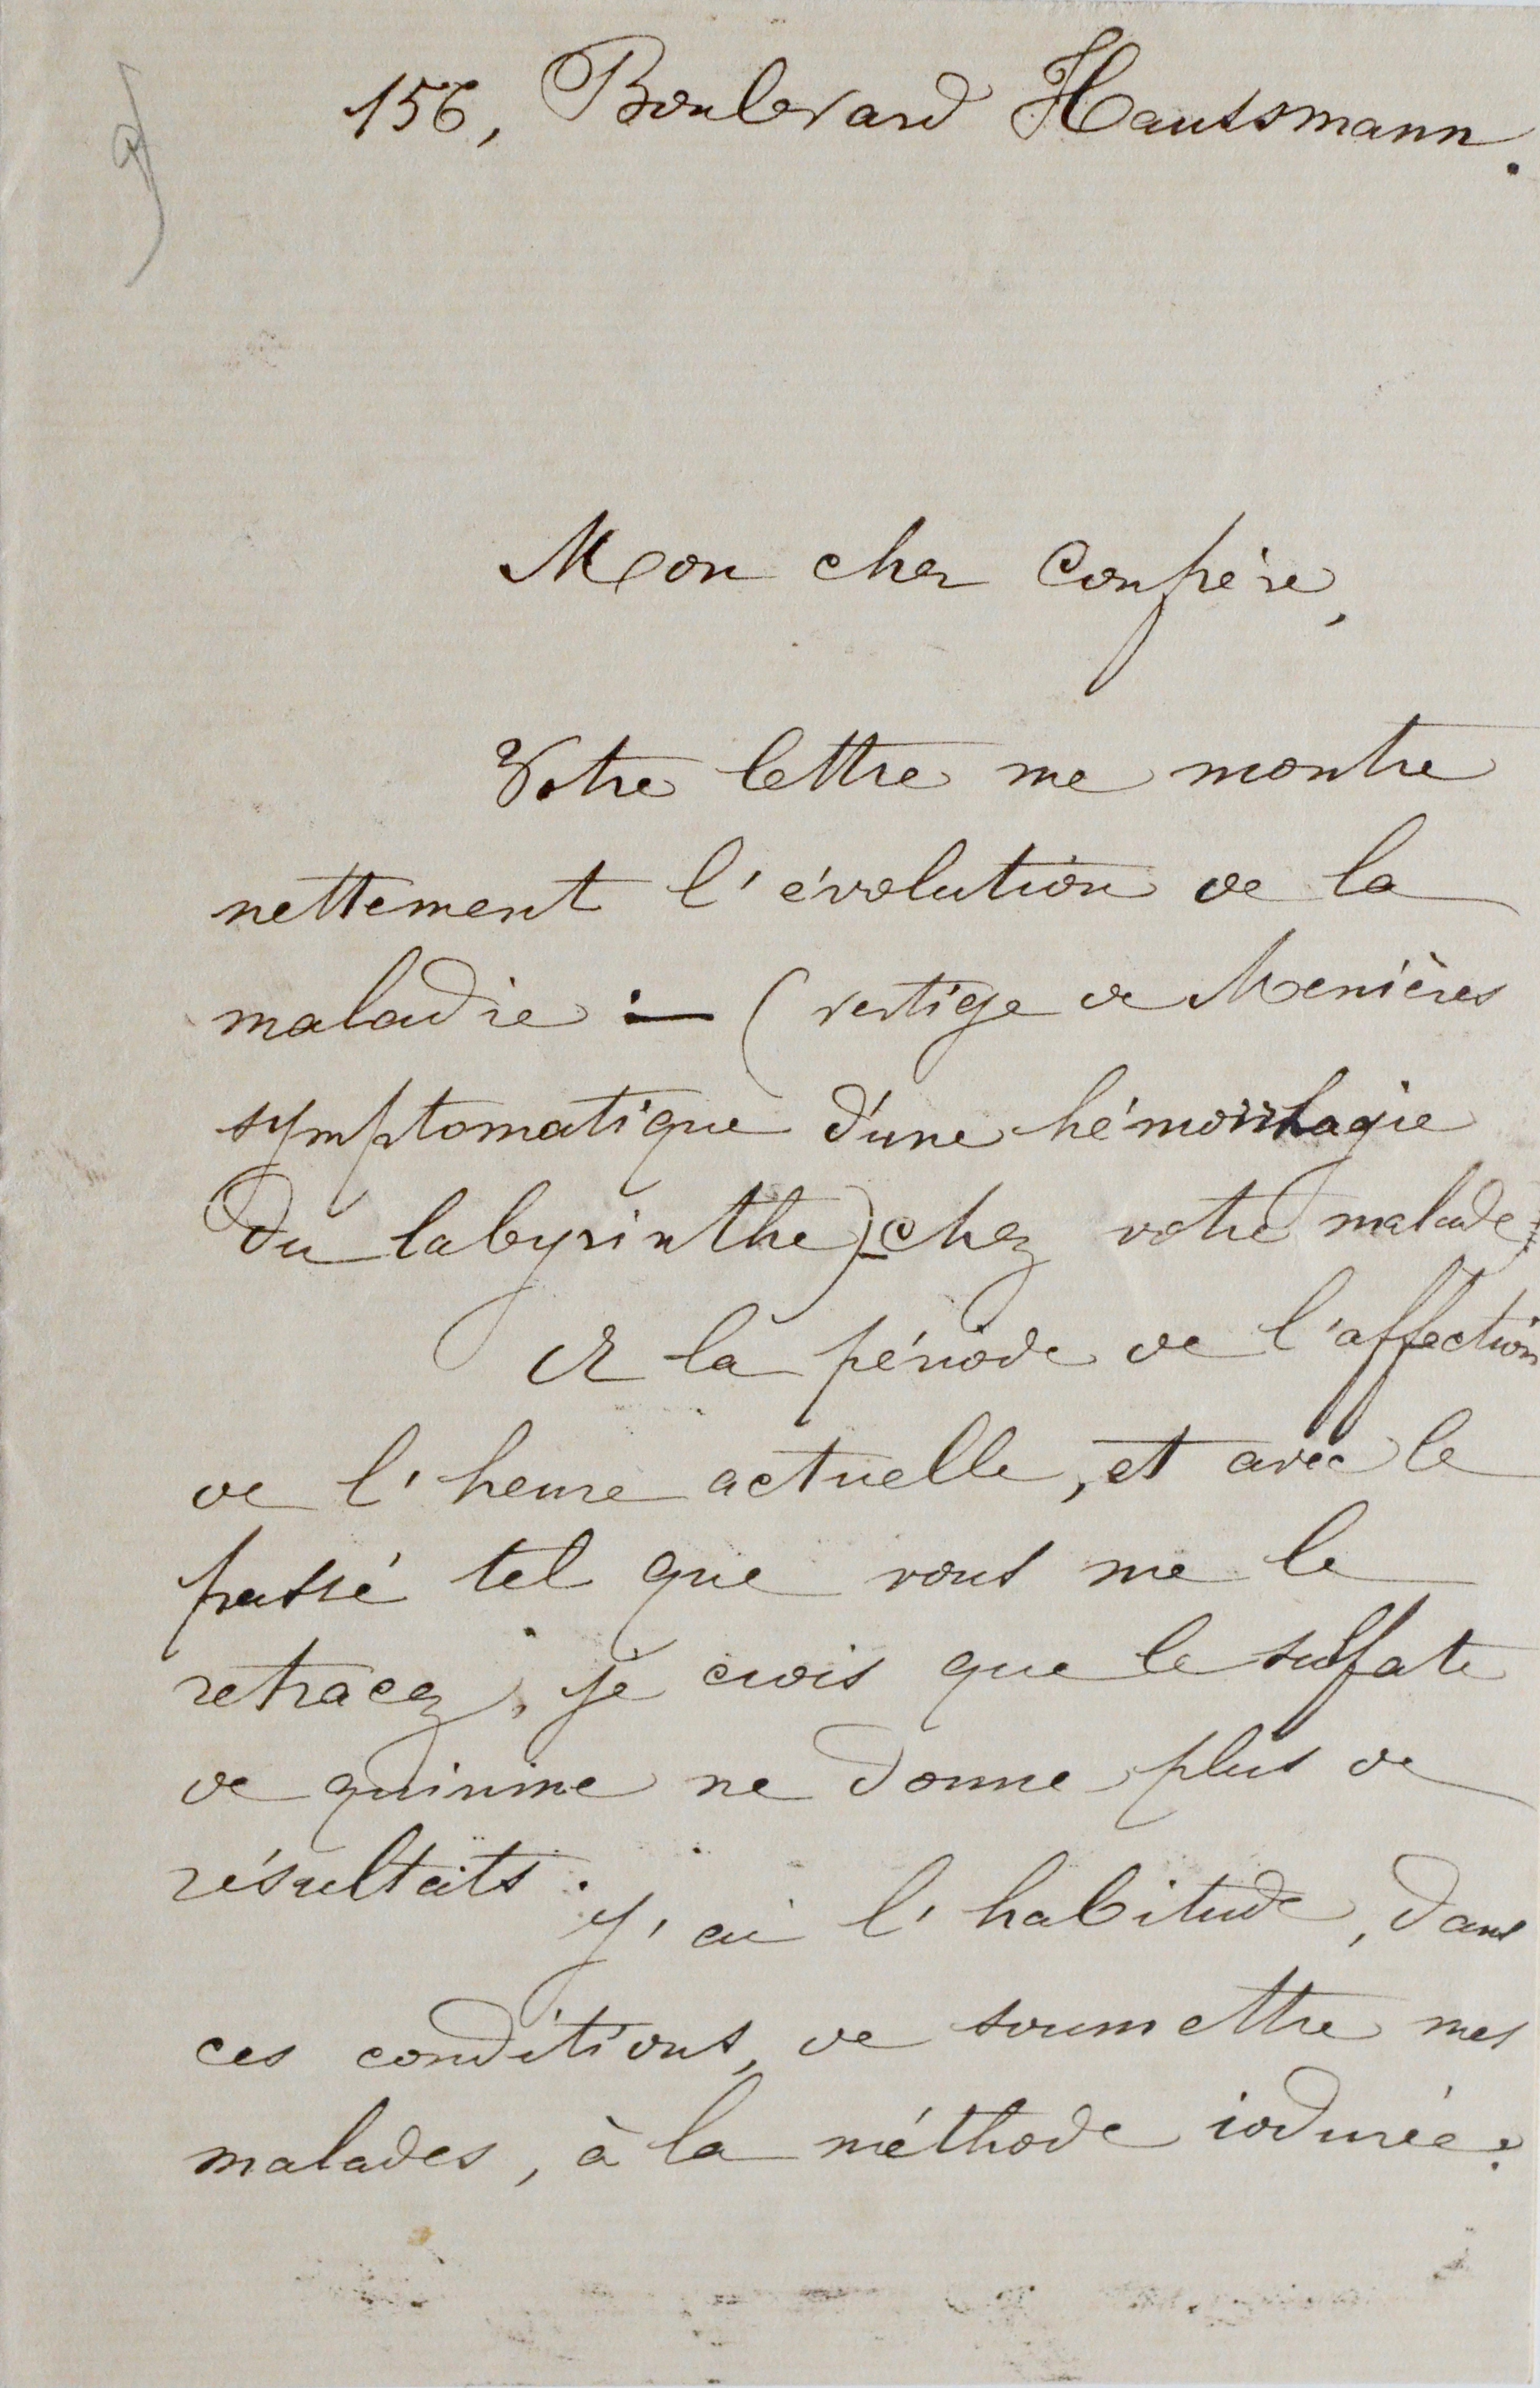 156, Boulevard Haussmann.
Mon cher Confrère,
Votre lettre me montre
nettement l'évolution de la
maladie :— (vertige de Menières
symptomatique d'une hémorrhagie
du labyrinthe) chez votre malade.
A la période de l'affection
de l'heure actuelle, et avec le
passé tel que vous me le
retracez, je crois que le sulfate
de quinine ne donne plus de
résultats.
J'ai l'habitude, dans
ces conditions, de soumettre mes
malades, à la méthode iodurée.